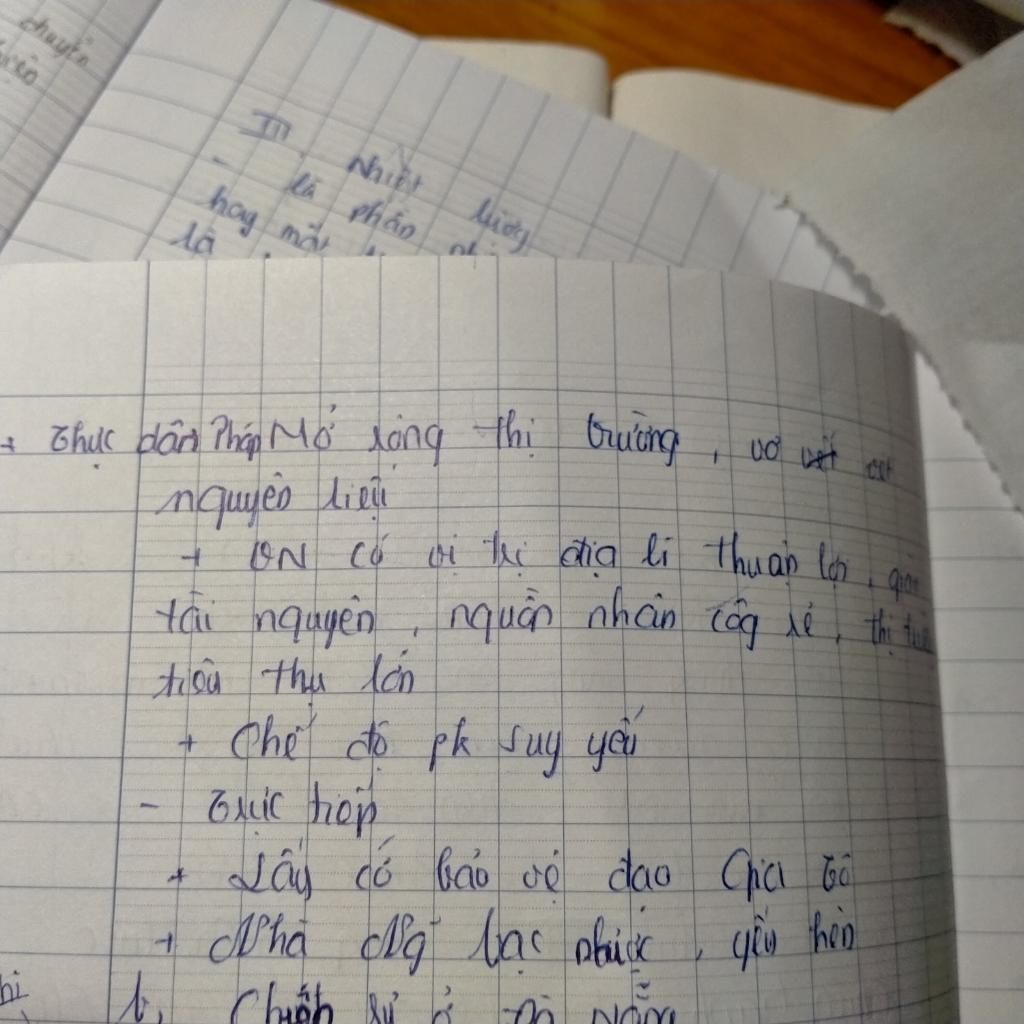 chuyển
III Nhiệt lượng
- là phần
hay mất
là
+ Thực dân Pháp Mở rộng thị trường, vơ vét
nguyên liệu
+ ĐN có vị trí địa lí thuận lợi, giàu
tài nguyên, nguồn nhân công rẻ, thị
tiêu thụ lớn
+ Chế độ pk suy yếu
- Trực tiếp
+ Lấy cớ bảo vệ đạo Gia Tô
+ Nhà Ng bạc nhược, yếu hèn
b, Chiến sự ở Đà Nẵng